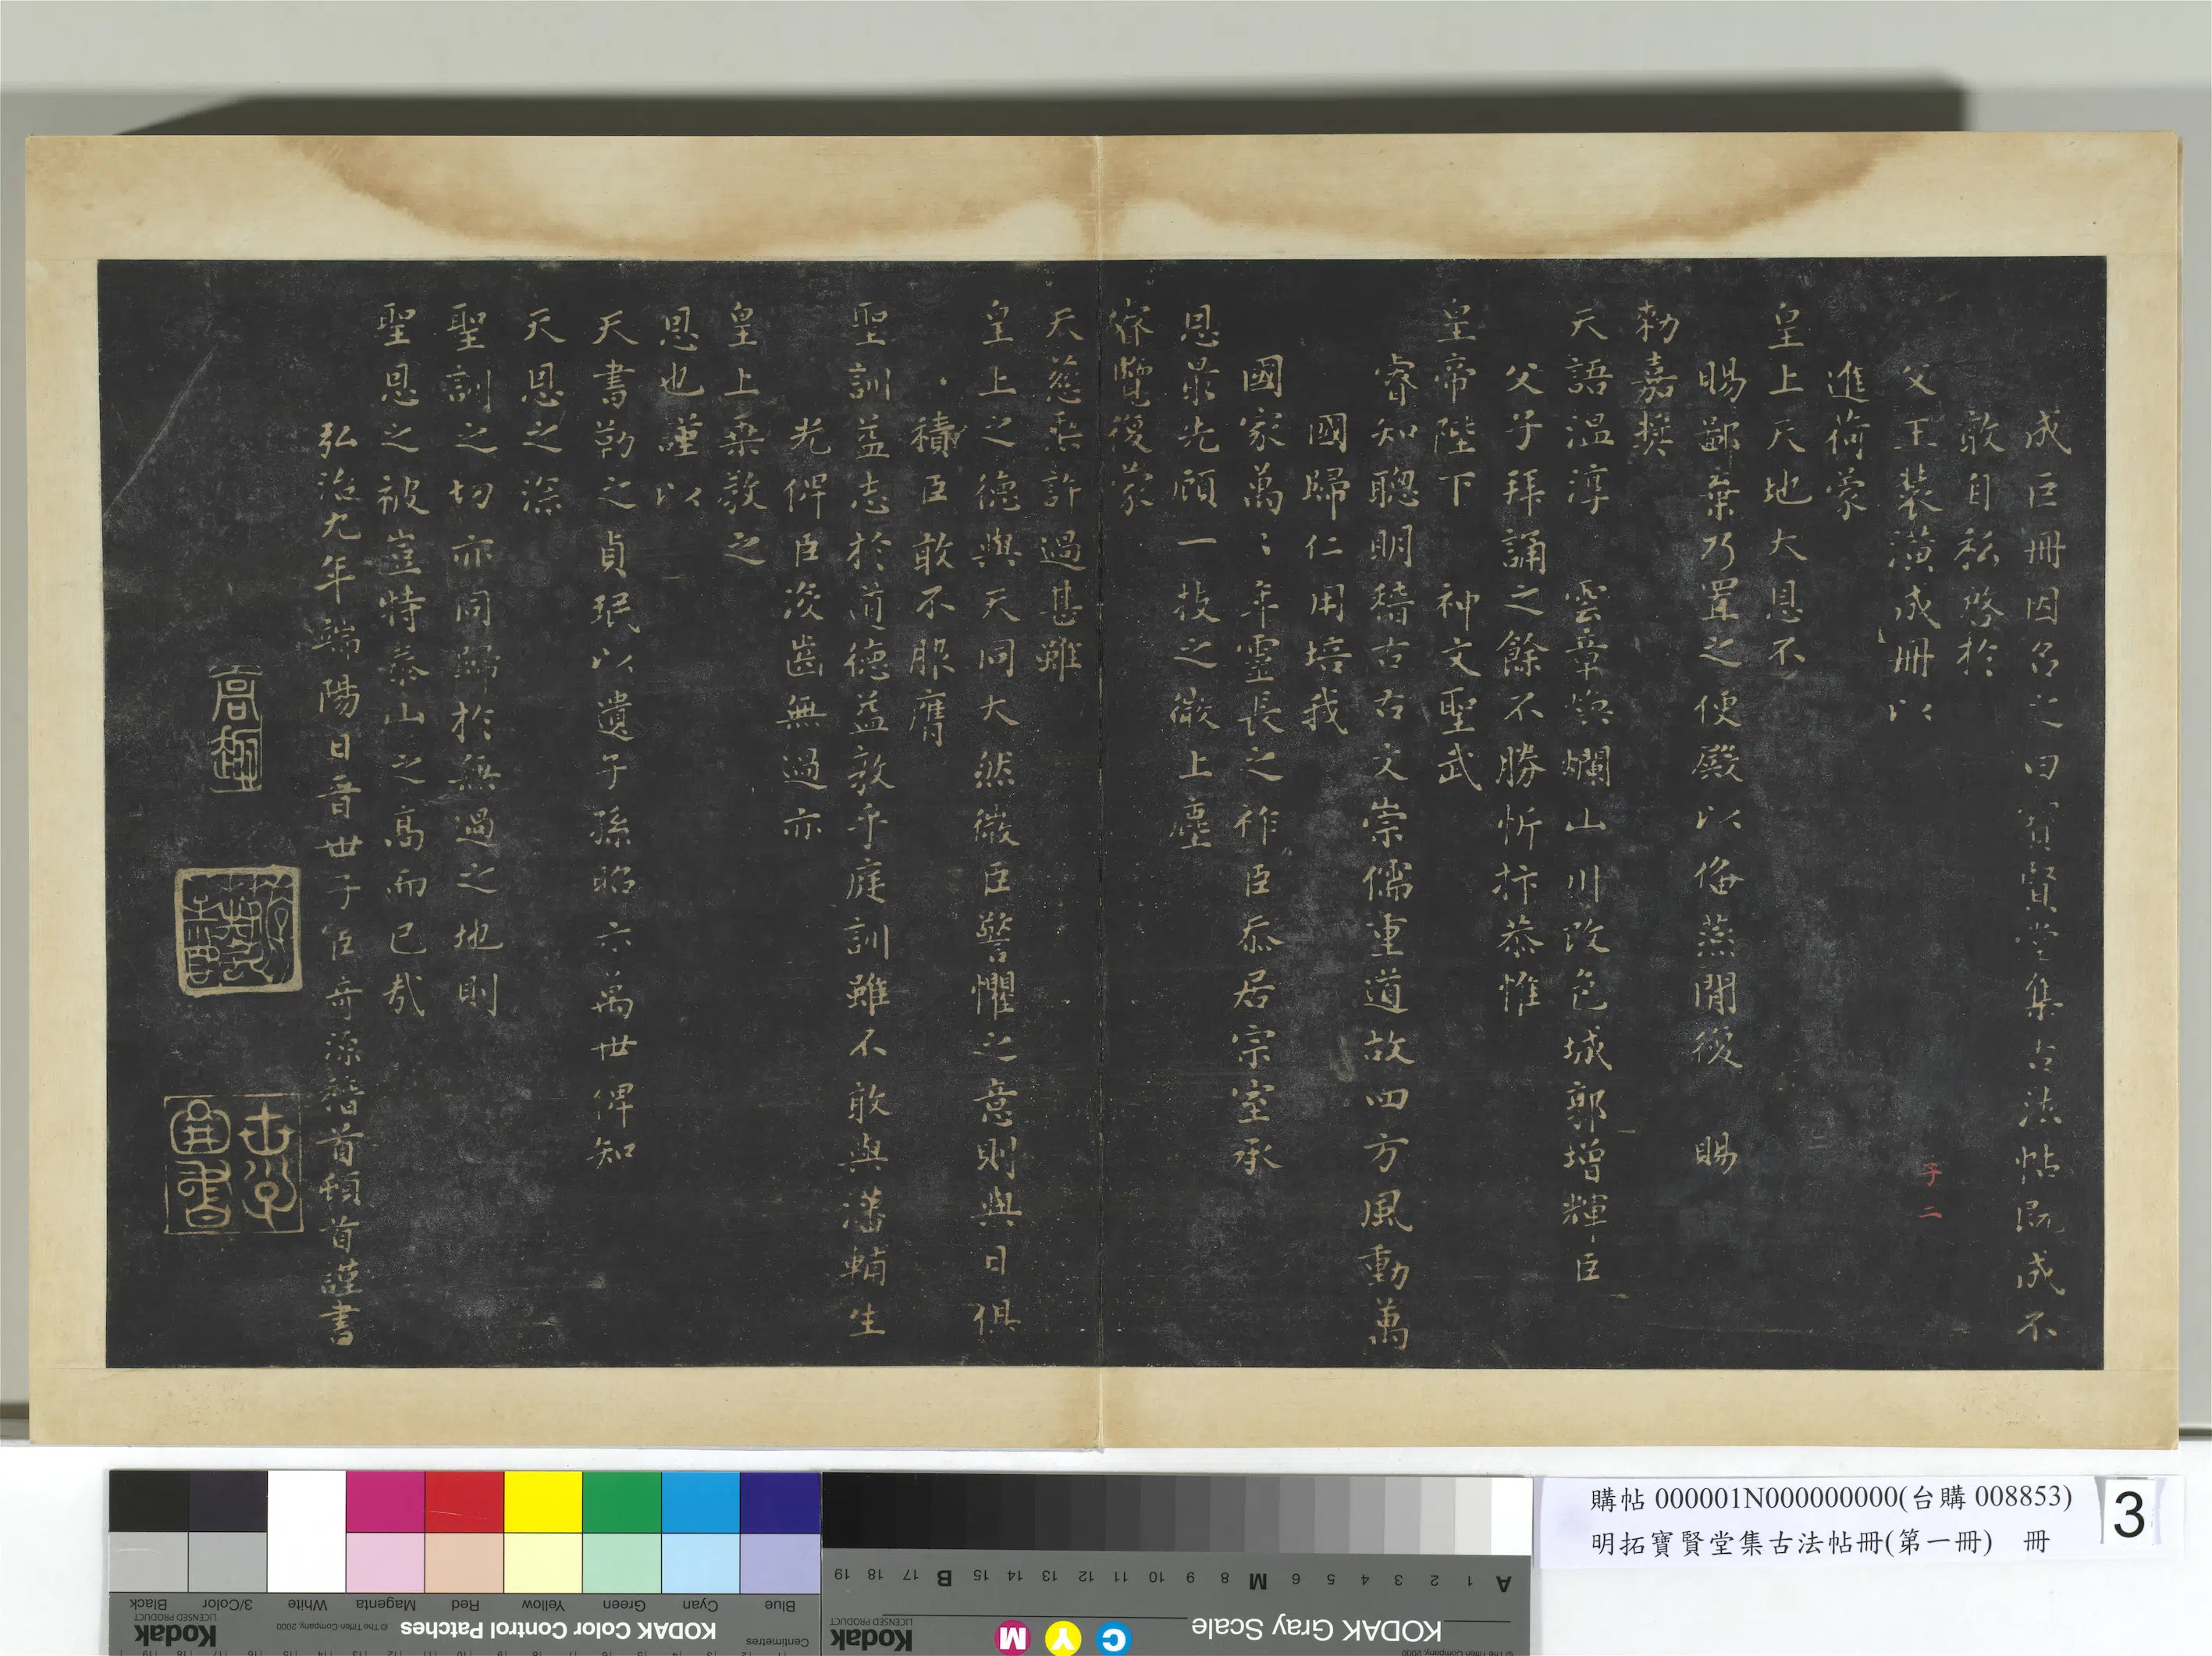 成巨冊因名之曰寶賢堂集古法帖既成不
敢自私啓於
父王裝潢成冊以
進荷蒙
皇上天地大恩不
賜鄙棄乃置之便殿以俻燕閒後 賜
勑嘉獎
天語温淳 雲章焕爛山川改色城郭增輝臣
父子拜誦之餘不勝忻抃恭惟
皇帝陛下 神文聖武
睿知聰明稽古右文崇儒重道故四方風動萬
國歸仁用培我
國家萬〻年靈長之祚臣忝居宗室承
恩最先顧一技之微上塵
睿覽復蒙
天慈奬許過甚雖
皇上之德與天同大然微臣警懼之意則與日俱
積臣敢不服膺
聖訓益志於道德益敦乎庭訓雖不敢與藩輔生
光俾臣没齒無過亦
皇上桒教之
恩也謹以
天書勒之貞珉以遺子孫昭示萬世俾知
天恩之深
聖訓之切亦同歸於無過之地則
聖恩之被豈特泰山之高而已哉
弘治九年端陽日晋世子臣奇源稽首頓首謹書
子二
購帖 000001N000000000(台購 008853)
明拓寶賢堂集古法帖冊(第一冊) 冊
3
Blue Cyan Green Yellow Red Magenta White 3/Color Black
Centimetres
KODAK Color Control Patches
© The Tiffen Company, 2000
Kodak
LICENSED PRODUCT
A 1 2 3 4 5 6 M 8 9 10 11 12 13 14 15 B 17 18 19
KODAK Gray Scale
C Y M
Kodak
LICENSED PRODUCT